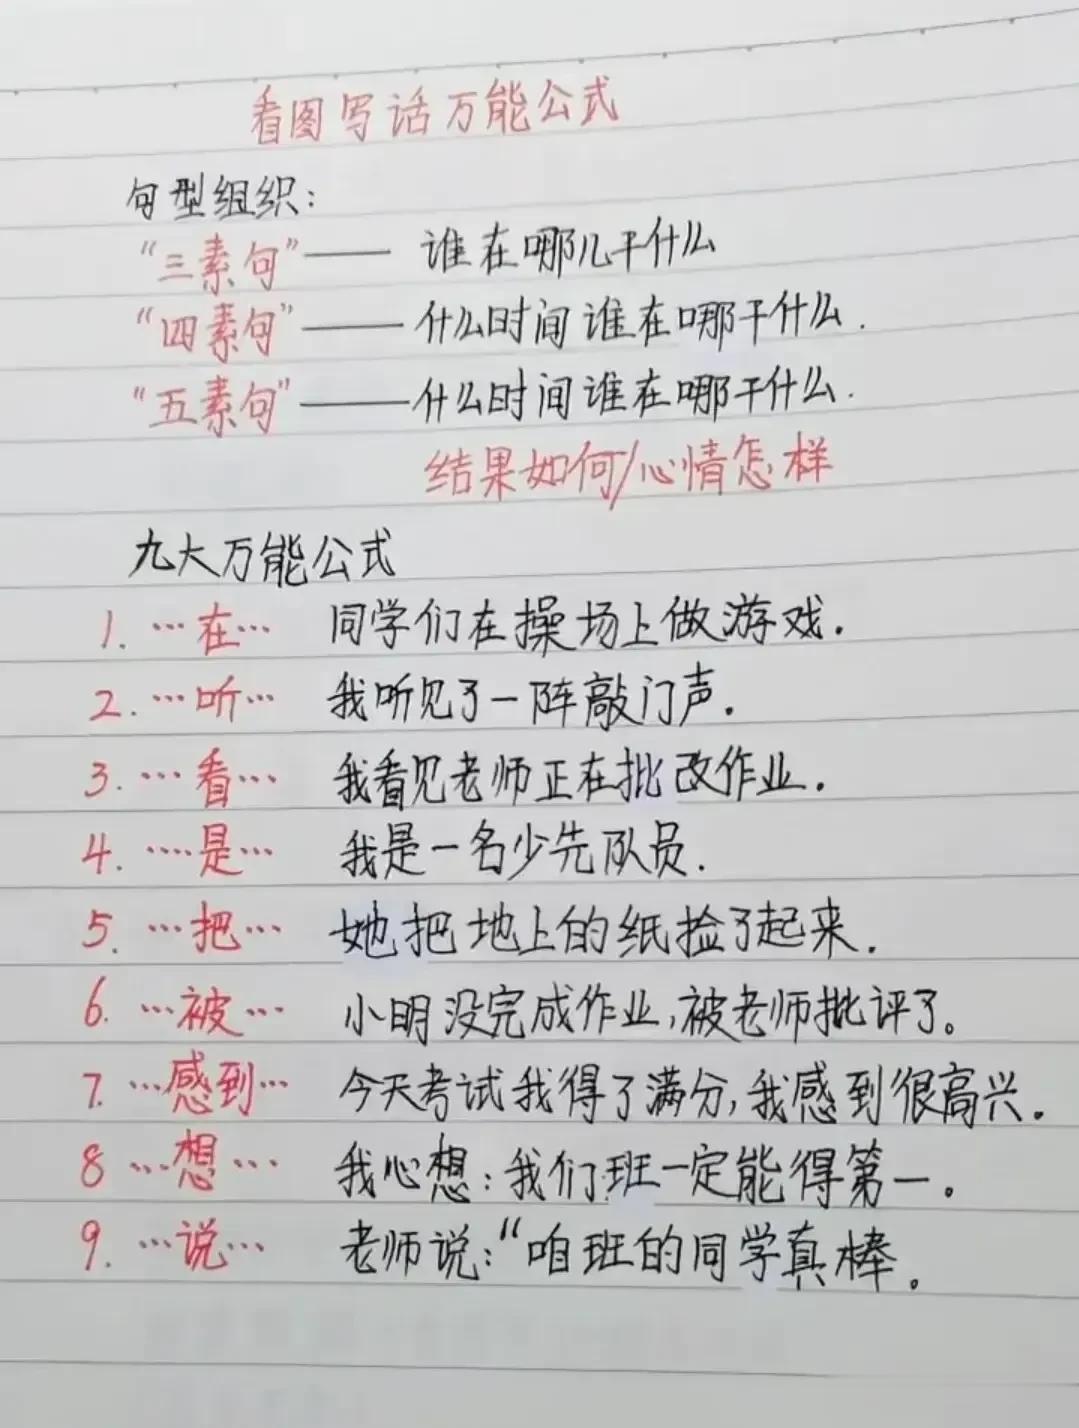 看图写话万能公式
句型组织：
“三素句”—— 谁在哪儿干什么
“四素句”—— 什么时间谁在哪干什么.
“五素句”—— 什么时间谁在哪干什么.
结果如何/心情怎样
九大万能公式
1. …在… 同学们在操场上做游戏.
2. …听… 我听见了一阵敲门声.
3. …看… 我看见老师正在批改作业.
4. …是… 我是一名少先队员.
5. …把… 她把地上的纸捡了起来.
6. …被… 小明没完成作业,被老师批评了。
7. …感到… 今天考试我得了满分,我感到很高兴.
8 …想… 我心想：我们班一定能得第一。
9. …说… 老师说：“咱班的同学真棒。